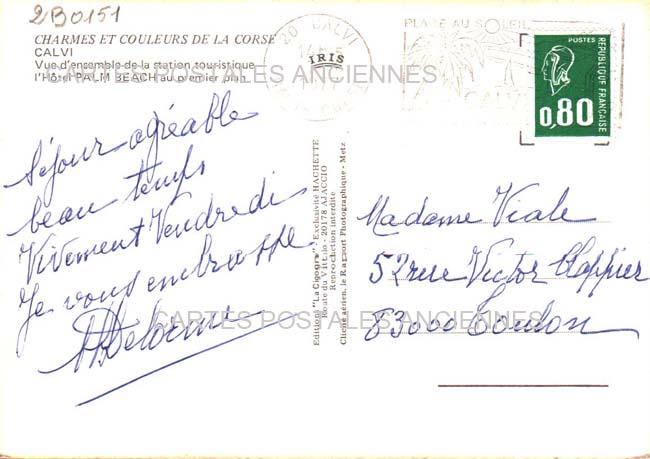 2B0151
CHARMES ET COULEURS DE LA CORSE
CALVI
Vue d'ensemble de la station touristique
l'Hôtel PALM BEACH au premier plan
20 CALVI
IRIS
PLAGE AU SOLEIL
CALVI
POSTES
REPUBLIQUE FRANÇAISE
0,80
CARTES POSTALES ANCIENNES
Séjour agréable
beau temps
Vivement Vendredi
Je vous embrasse
Editions "La Cigogne" - Exclusivité HACHETTE
Route du Vittulo - 20178 AJACCIO
Reproduction interdite
Cliché aérien, le Rapport Photographique - Metz
Madame Viale
52 rue Victor Clappier
83000 Toulon
CARTES POSTALES ANCIENNES